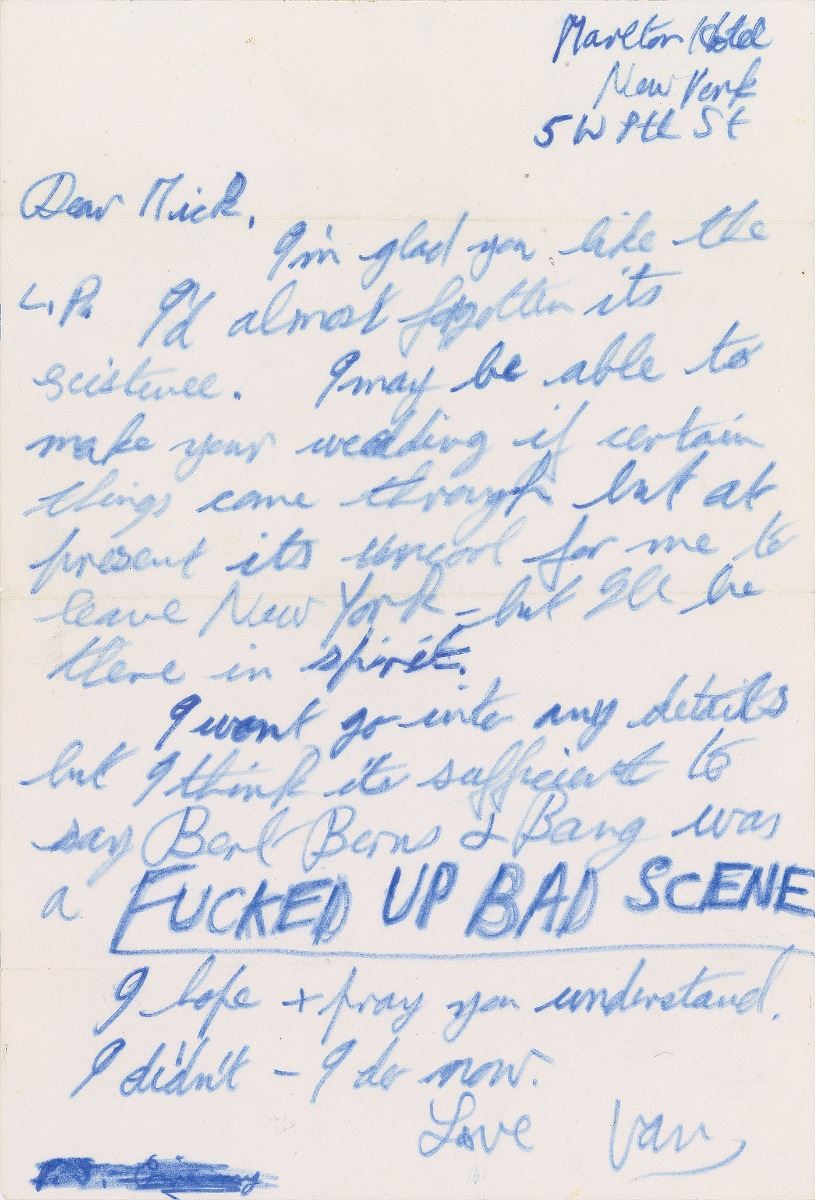 Marlton Hotel
New York
5 W 8th St
Dear Mick,
I'm glad you like the
L.P. I'd almost forgotten its
existence. I may be able to
make your wedding if certain
things come through but at
present its uncool for me to
leave New York – but I'll be
there in spirit.
I wont go into any details
but I think its sufficient to
say Bert Berns & Bang was
a FUCKED UP BAD SCENE
I hope + pray you understand.
I didn't – I do now.
Love Van
P.S.